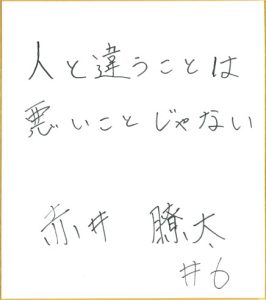 人と違うことは
悪いことじゃない
赤井 瞭太
#6